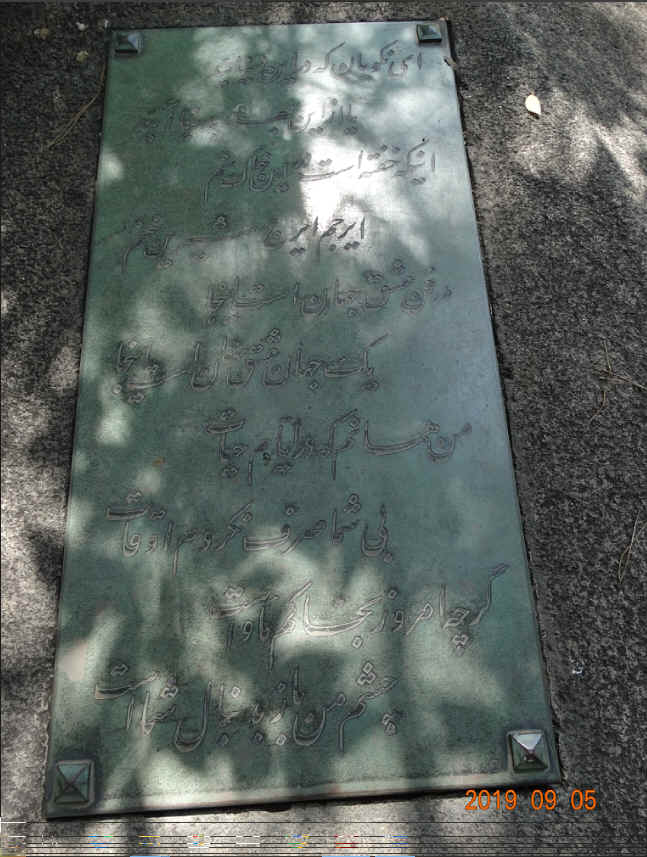 ای نکویان که در این دنیایید
یا از این بعد به دنیا آیید
اینکه خفته است در این خاک منم
ایرجم ایرج شیرین سخنم
مدفن عشق جهان است اینجا
یک جهان عشق نهان است اینجا
من همانم که در ایام حیات
بی شما صرف نکردم اوقات
گرچه امروز بخاکم مأواست
چشم من باز بدنبال شماست
2019 09 05